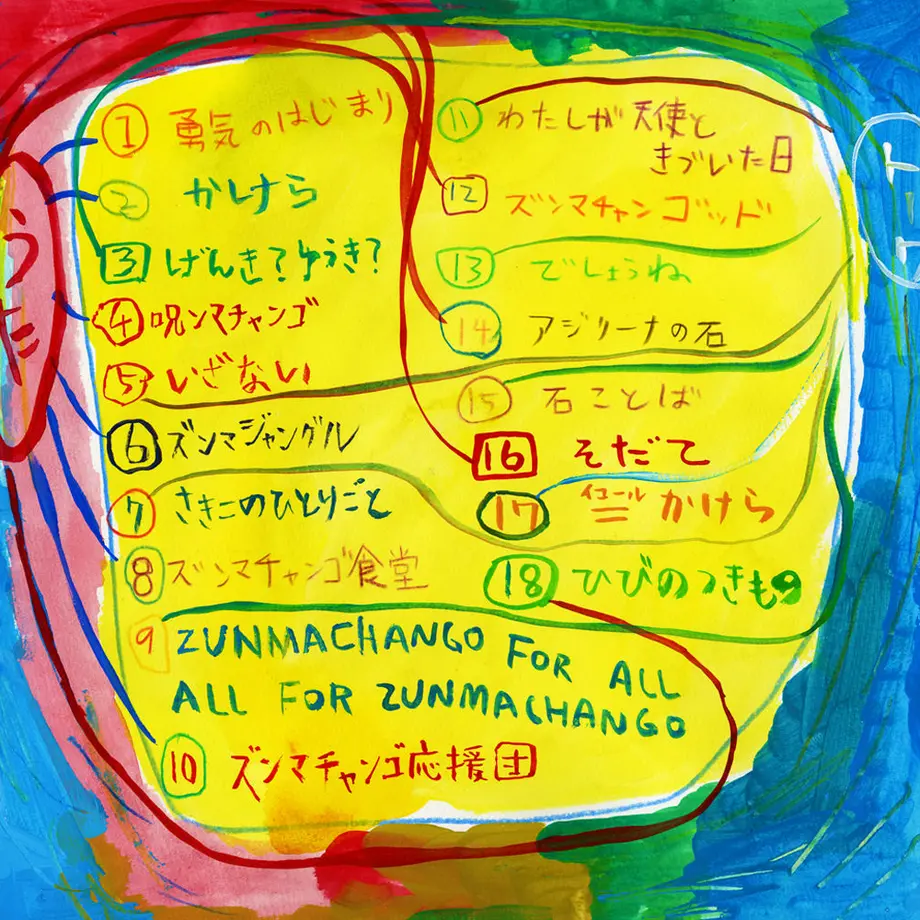 うた
1 勇気のはじまり
2 かけら
3 げんき?ゆうき?
4 呪ンマチャンゴ
5 いざない
6 ズンマジャングル
7 さきこのひとりごと
8 ズンマチャンゴ食堂
9 ZUNMACHANGO FOR ALL
ALL FOR ZUNMACHANGO
10 ズンマチャンゴ応援団
11 わたしが天使と
きづいた日
12 ズンマチャンゴッド
13 でしょうね
14 アジリーナの石
15 石ことば
16 そだて
17 イコール
= かけら
18 ひびのつきもの